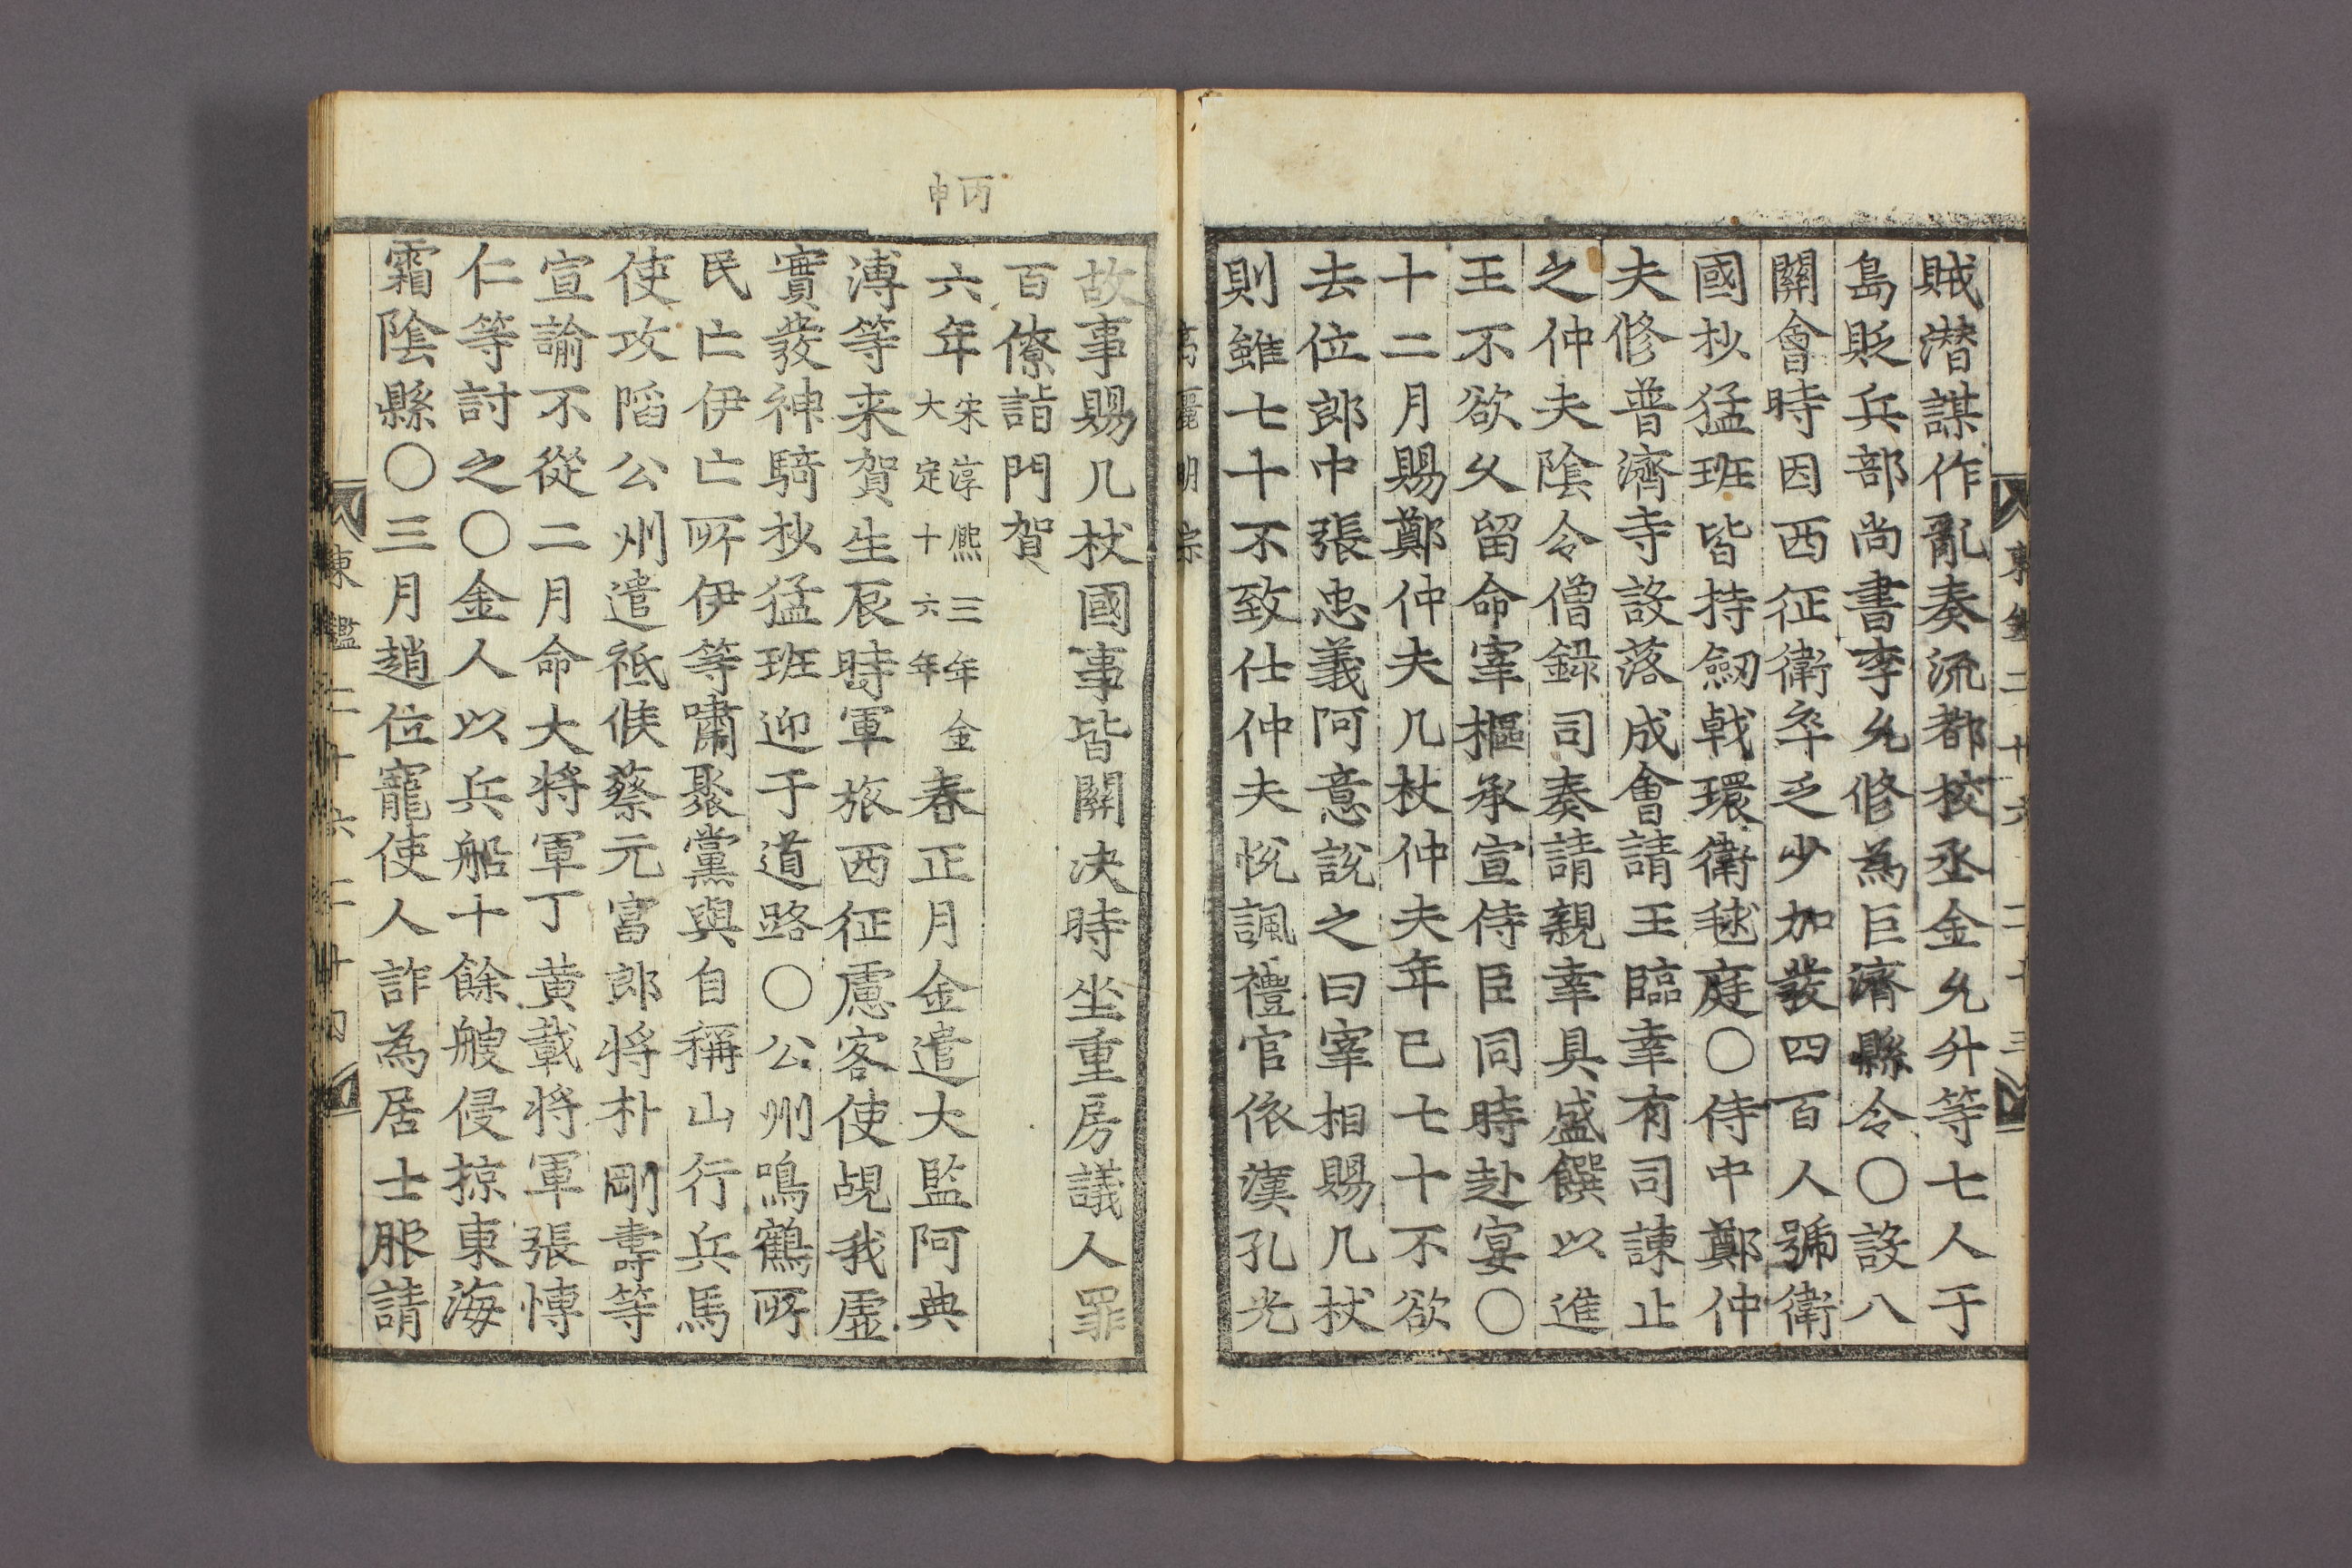 賊潜謀作亂奏流都校丞金允升等七人于
島貶兵部尚書李允修為巨濟縣令〇設八
關會時因西征衛卒乏少加發四百人號衛
國抄猛班皆持劒戟環衛毬庭〇侍中鄭仲
夫修普濟寺設落成會請王臨幸有司諫止
之仲夫陰令僧錄司奏請親幸具盛饌以進
王不欲乆留命宰樞承宣侍臣同時赴宴〇
十二月賜鄭仲夫几杖仲夫年已七十不欲
去位郎中張忠義阿意說之曰宰相賜几杖
則雖七十不致仕仲夫悅諷禮官依漢孔光
高麗明宗
故事賜几杖國事皆關决時坐重房議人罪
百僚詣門賀
丙申
六年宋淳熈三年金大定十六年春正月金遣大監阿典
溥等来賀生辰時軍旅西征慮客使覘我虛
實發神騎抄猛班迎于道路〇公州鳴鶴所
民亡伊亡所伊等嘯聚黨與自稱山行兵馬
使攻䧟公州遣祗候蔡元富郎将朴剛壽等
宣諭不從二月命大将軍丁黄載将軍張博
仁等討之〇金人以兵船十餘艘侵掠東海
霜陰縣〇三月趙位寵使人詐為居士服請
東鑑二十六